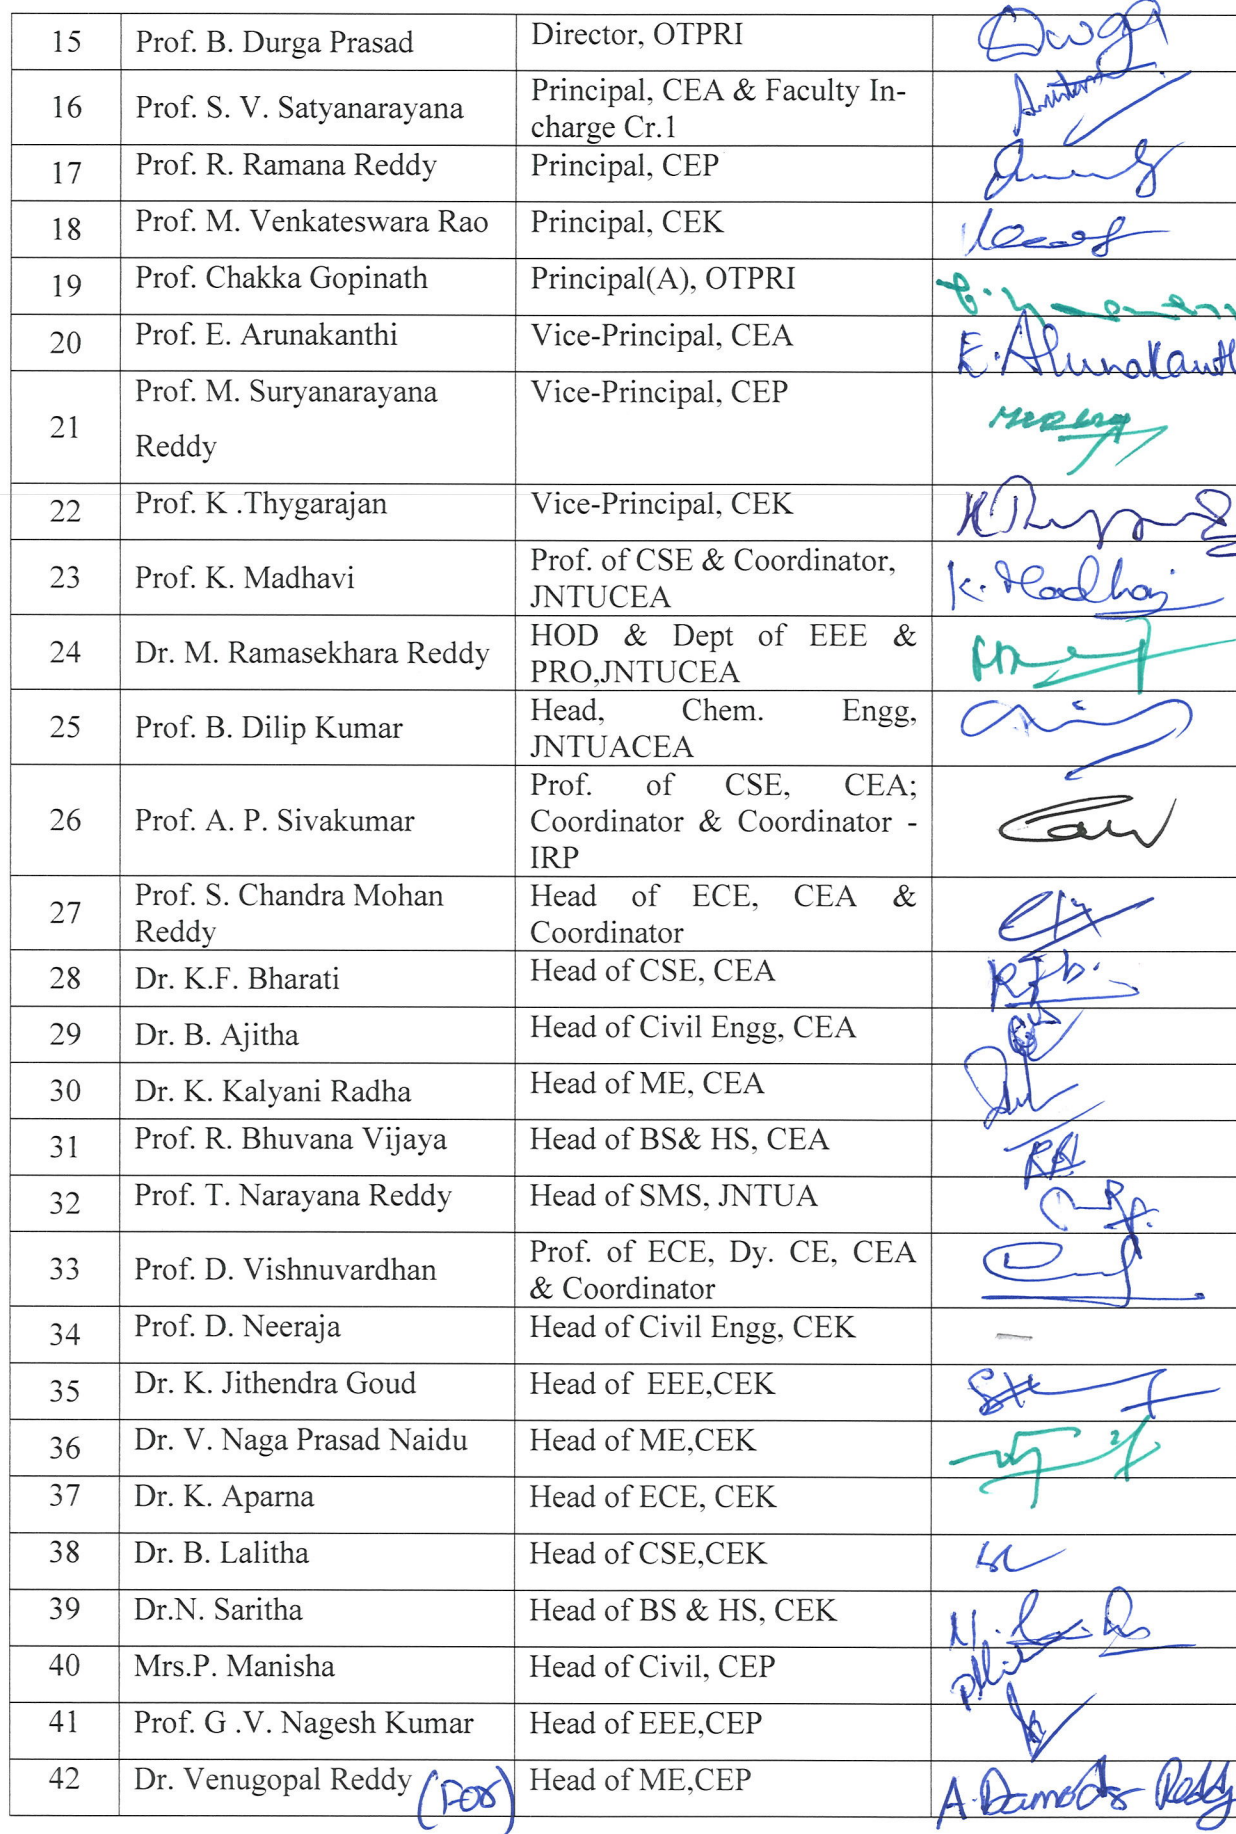 15 Prof. B. Durga Prasad Director, OTPRI Durga
16 Prof. S. V. Satyanarayana Principal, CEA & Faculty In-
charge Cr.1
17 Prof. R. Ramana Reddy Principal, CEP
18 Prof. M. Venkateswara Rao Principal, CEK
19 Prof. Chakka Gopinath Principal(A), OTPRI
20 Prof. E. Arunakanthi Vice-Principal, CEA E. Arunakanth
21 Prof. M. Suryanarayana Vice-Principal, CEP
Reddy
22 Prof. K .Thygarajan Vice-Principal, CEK
23 Prof. K. Madhavi Prof. of CSE & Coordinator, K. Madhavi
JNTUCEA
24 Dr. M. Ramasekhara Reddy HOD & Dept of EEE &
PRO,JNTUCEA
25 Prof. B. Dilip Kumar Head, Chem. Engg,
JNTUACEA
26 Prof. A. P. Sivakumar Prof. of CSE, CEA;
Coordinator & Coordinator -
IRP
27 Prof. S. Chandra Mohan Head of ECE, CEA &
Reddy Coordinator
28 Dr. K.F. Bharati Head of CSE, CEA
29 Dr. B. Ajitha Head of Civil Engg, CEA
30 Dr. K. Kalyani Radha Head of ME, CEA
31 Prof. R. Bhuvana Vijaya Head of BS& HS, CEA
32 Prof. T. Narayana Reddy Head of SMS, JNTUA
33 Prof. D. Vishnuvardhan Prof. of ECE, Dy. CE, CEA
& Coordinator
34 Prof. D. Neeraja Head of Civil Engg, CEK —
35 Dr. K. Jithendra Goud Head of EEE,CEK
36 Dr. V. Naga Prasad Naidu Head of ME,CEK
37 Dr. K. Aparna Head of ECE, CEK
38 Dr. B. Lalitha Head of CSE,CEK
39 Dr.N. Saritha Head of BS & HS, CEK
40 Mrs.P. Manisha Head of Civil, CEP
41 Prof. G .V. Nagesh Kumar Head of EEE,CEP
42 Dr. Venugopal Reddy (For) Head of ME,CEP A. Damodar Reddy